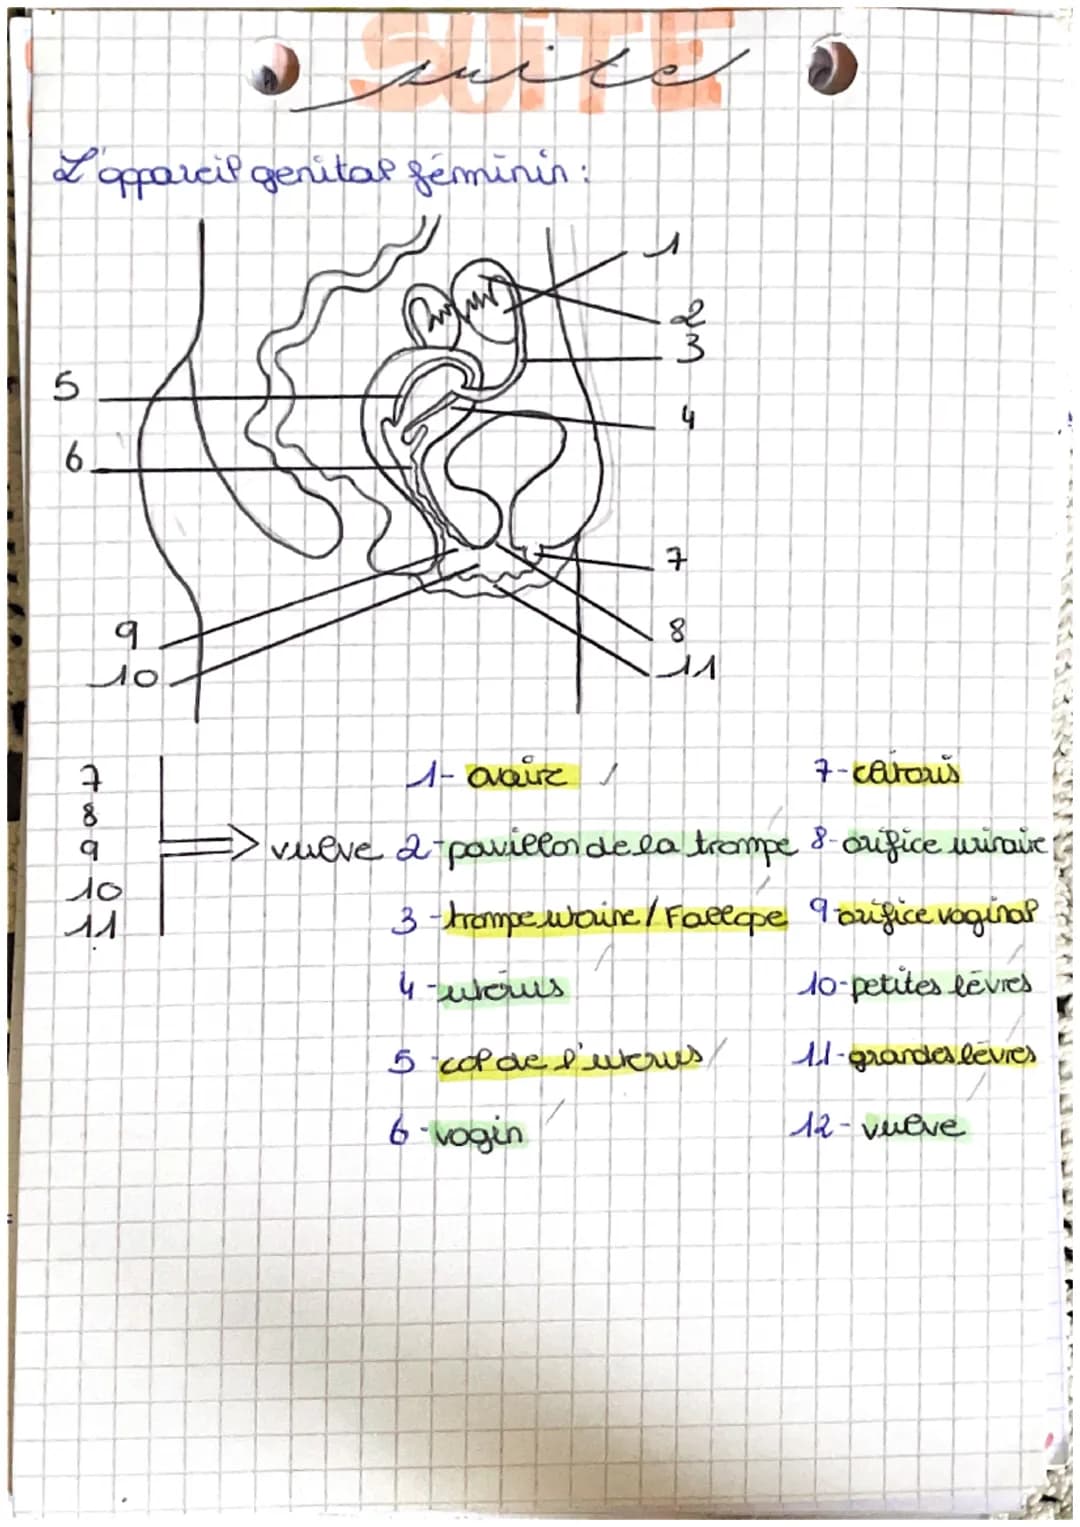 SUiTE
suite
L'appareil genital féminin :
1
2
3
5
4
6
7
9
8
10
11
7
8
9
10
11
vulve
1- ovaire
2- pavillon de la trompe
3 - trompe utérine / Fallope
4 - utérus
5 - col de l'utérus
6 - vagin
7 - clitoris
8- orifice urinaire
9 orifice vaginal
10- petites lèvres
11- grandes lèvres
12- vulve